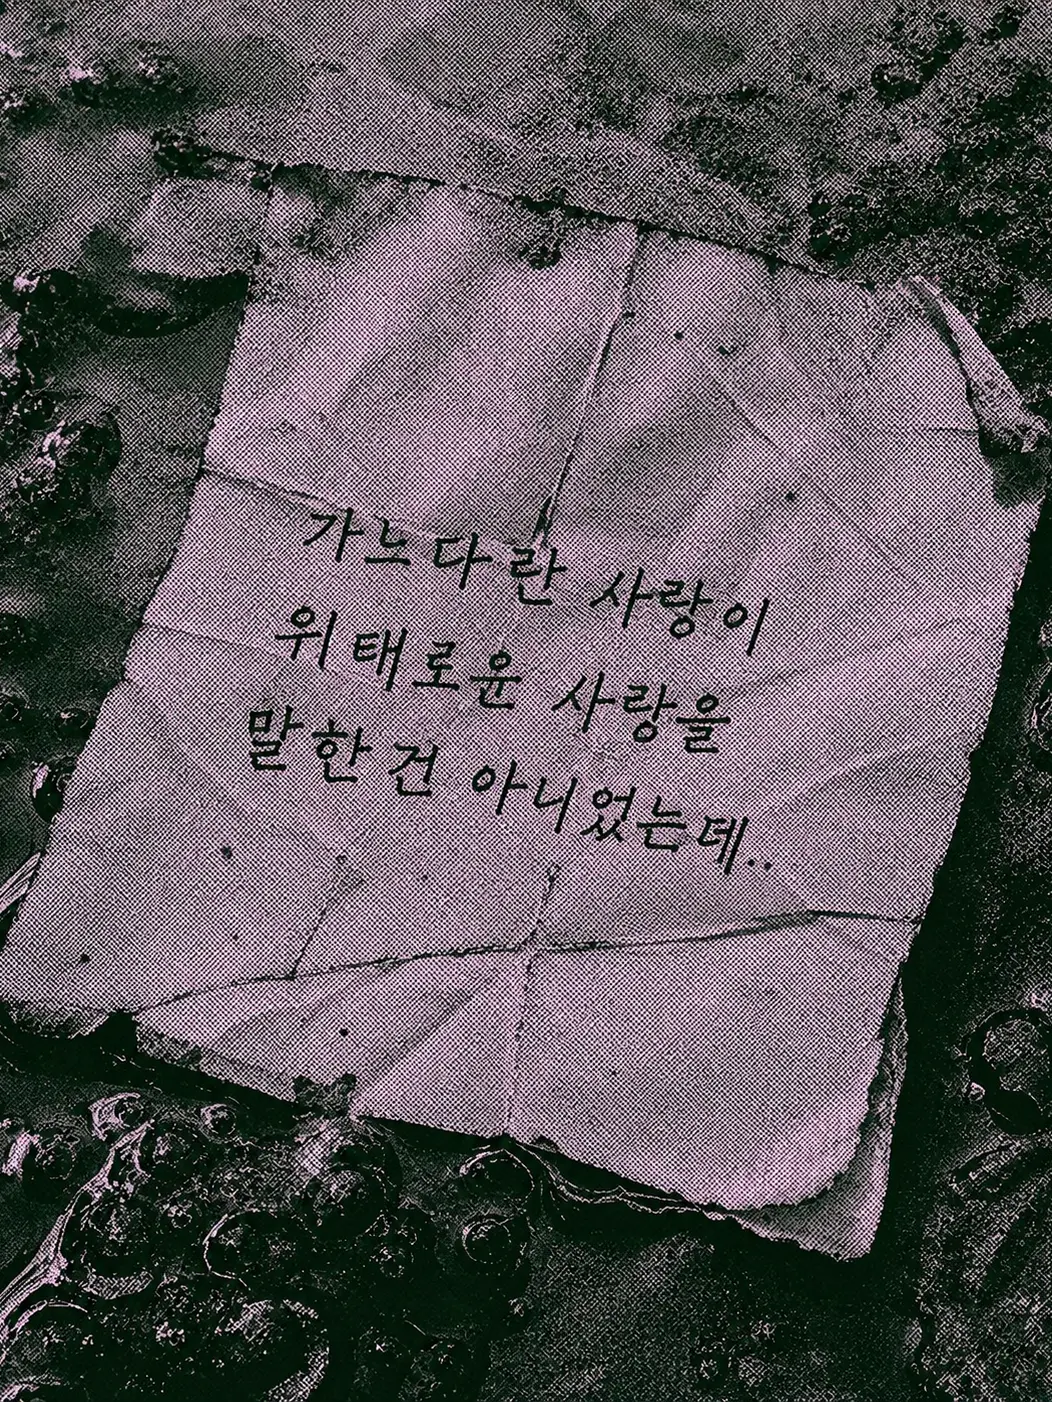 가느다란 사랑이
위태로운 사랑을
말한 건 아니었는데..